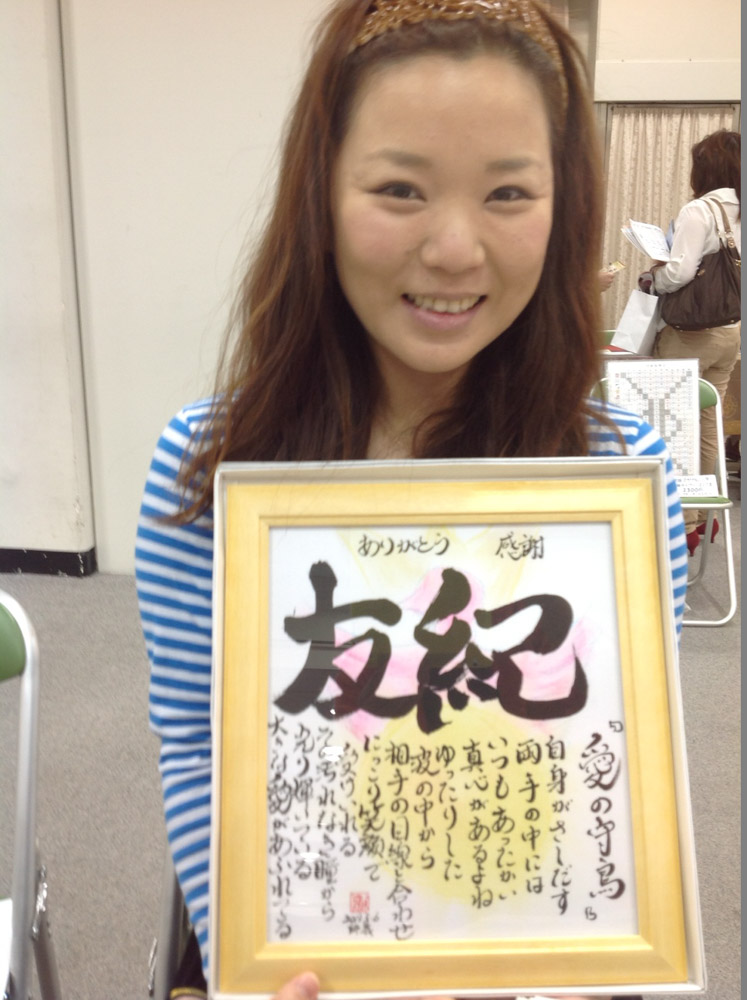 ありがとう 感謝
友紀
『愛の守鳥』
自身がさしだす
両手の中には
いつもあったかい
真心があるよね
ゆったりした
波の中から
相手の目線と合わせ
にっこり笑顔で
受けいれる
その汚れなき瞳から
光り輝いている
大きな愛があふれてくる